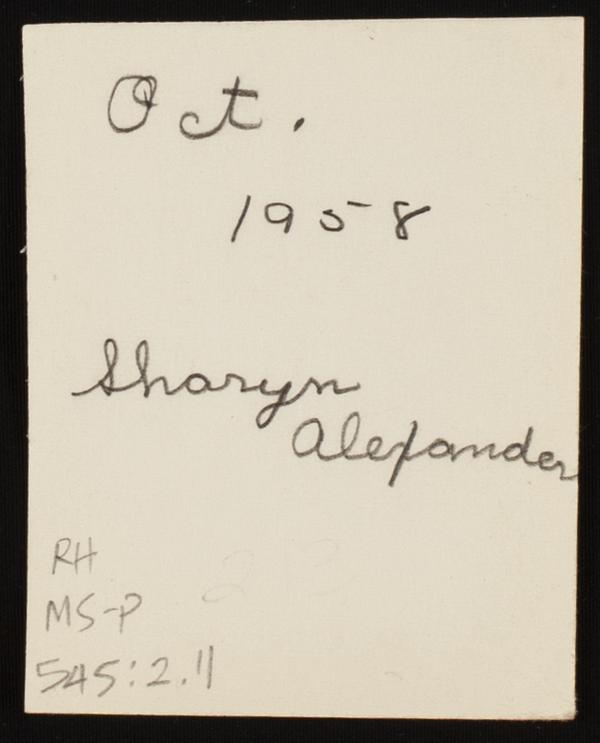 Oct.
1958
Sharyn
Alexander
RH
MS-P
545:2.11